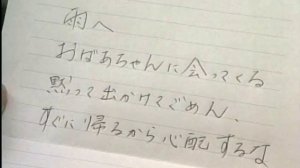 雨へ
おばあちゃんに会ってくる
黙って出かけてごめん、
すぐに帰るから心配するな